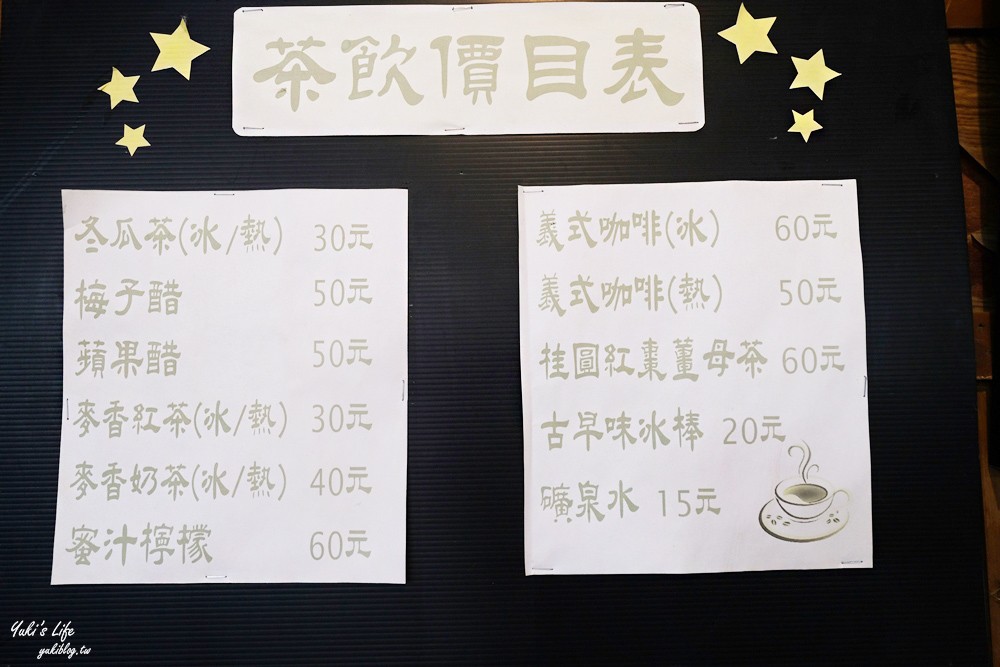 茶飲價目表
冬瓜茶(冰/熱) 30元
梅子醋 50元
蘋果醋 50元
麥香紅茶(冰/熱) 30元
麥香奶茶(冰/熱) 40元
蜜汁檸檬 60元
義式咖啡(冰) 60元
義式咖啡(熱) 50元
桂圓紅棗薑母茶 60元
古早味冰棒 20元
礦泉水 15元
Yuki's Life
yukiblog.tw